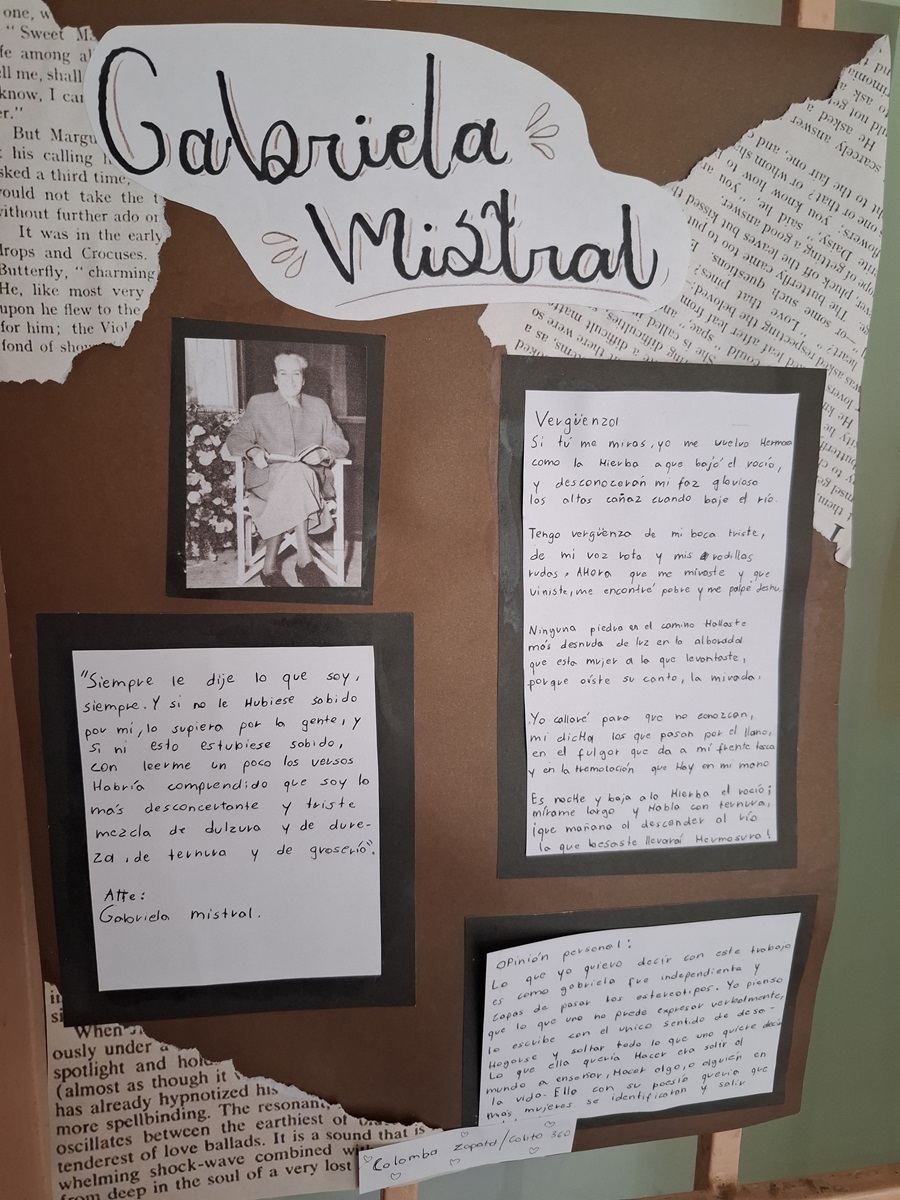 Gabriela
Mistral
one, w
" Sweet M
fe among al
ell me, shall
know, I car
er."
But Margu
his calling
sked a third time,
ould not take the t
without further ado or
It was in the early
drops and Crocuses.
Butterfly, " charming
He, like most very
upon he flew to the
for him; the Viol
fond of show
Vergüenza
Si tú me miras, yo me vuelvo Hermosa
como la Hierba a que bajó el rocío,
y desconoceran mi faz glorioso
las altas cañaz cuando baje el río.
Tengo vergüenza de mi boca triste,
de mi voz rota y mis rodillas
rudas. AHora que me miraste y que
viniste, me encontré pobre y me palpé desnu.
Ninguna piedra en el camino Hallaste
más desnuda de luz en la alborada
que esta mujer a la que levantaste,
porque oíste su canto, la mirada.
Yo callaré para que no conozcan,
mi dicha los que pasan por el llano,
en el fulgor que da a mi frente tosca
y en la tremolación que Hay en mi mano
Es noche y baja a la Hierba el rocío;
mírame largo y Habla con ternura,
¡que mañana al descender al río
la que besaste llevará Hermosura!
"Siempre le dije lo que soy,
siempre. Y si no le Hubiese sabido
por mi, lo supiera por la gente, y
si ni esto estubiese sabido,
con leerme un poco los versos
Habría comprendido que soy la
más desconcertante y triste
mezcla de dulzura y de dure-
za, de ternura y de grosería".
Atte:
Gabriela mistral.
Opinión personal:
Lo que yo quiero decir con este trabajo
es como gabriela fue independiente y
capas de pasar los estereotipos. Yo pienso
que lo que uno no puede expresar verbalmente,
lo escribe con el unico sentido de desa-
Hogarse y soltar todo lo que uno quiere decir
Lo que ella quería Hacer era salir al
mundo a enseñar, Hacer algo, o alguien en
la vida. Ella con su poesía quería que
más mujeres se identificaran y salir
When
ously under a
spotlight and hold
(almost as though it
has already hypnotized his
more spellbinding. The resonant,
oscillates between the earthiest of
tenderest of love ballads. It is a sound that is
whelming shock-wave combined with
from deep in the soul of a very lost
Colomba Zapata/Colito 360